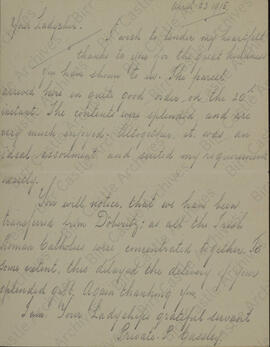 April 23 1915
Your Ladyship.
I wish to tender my heartfelt
thanks to you for the great kindness
you have shown to us. The parcel
arrived here in quite good order on the 20th
instant. The contents were splendid, and
very much enjoyed. Altogether it was an
ideal assortment, and suited my requirements
exactly.
You will notice, that we have been
transferred from Döberitz; as all the Irish
Roman Catholics were concentrated together. To
some extent, this delayed the delivery of your
splendid gift. Again thanking you
I am Your Ladyship's grateful servant
Private P.
Birr Castle Archives